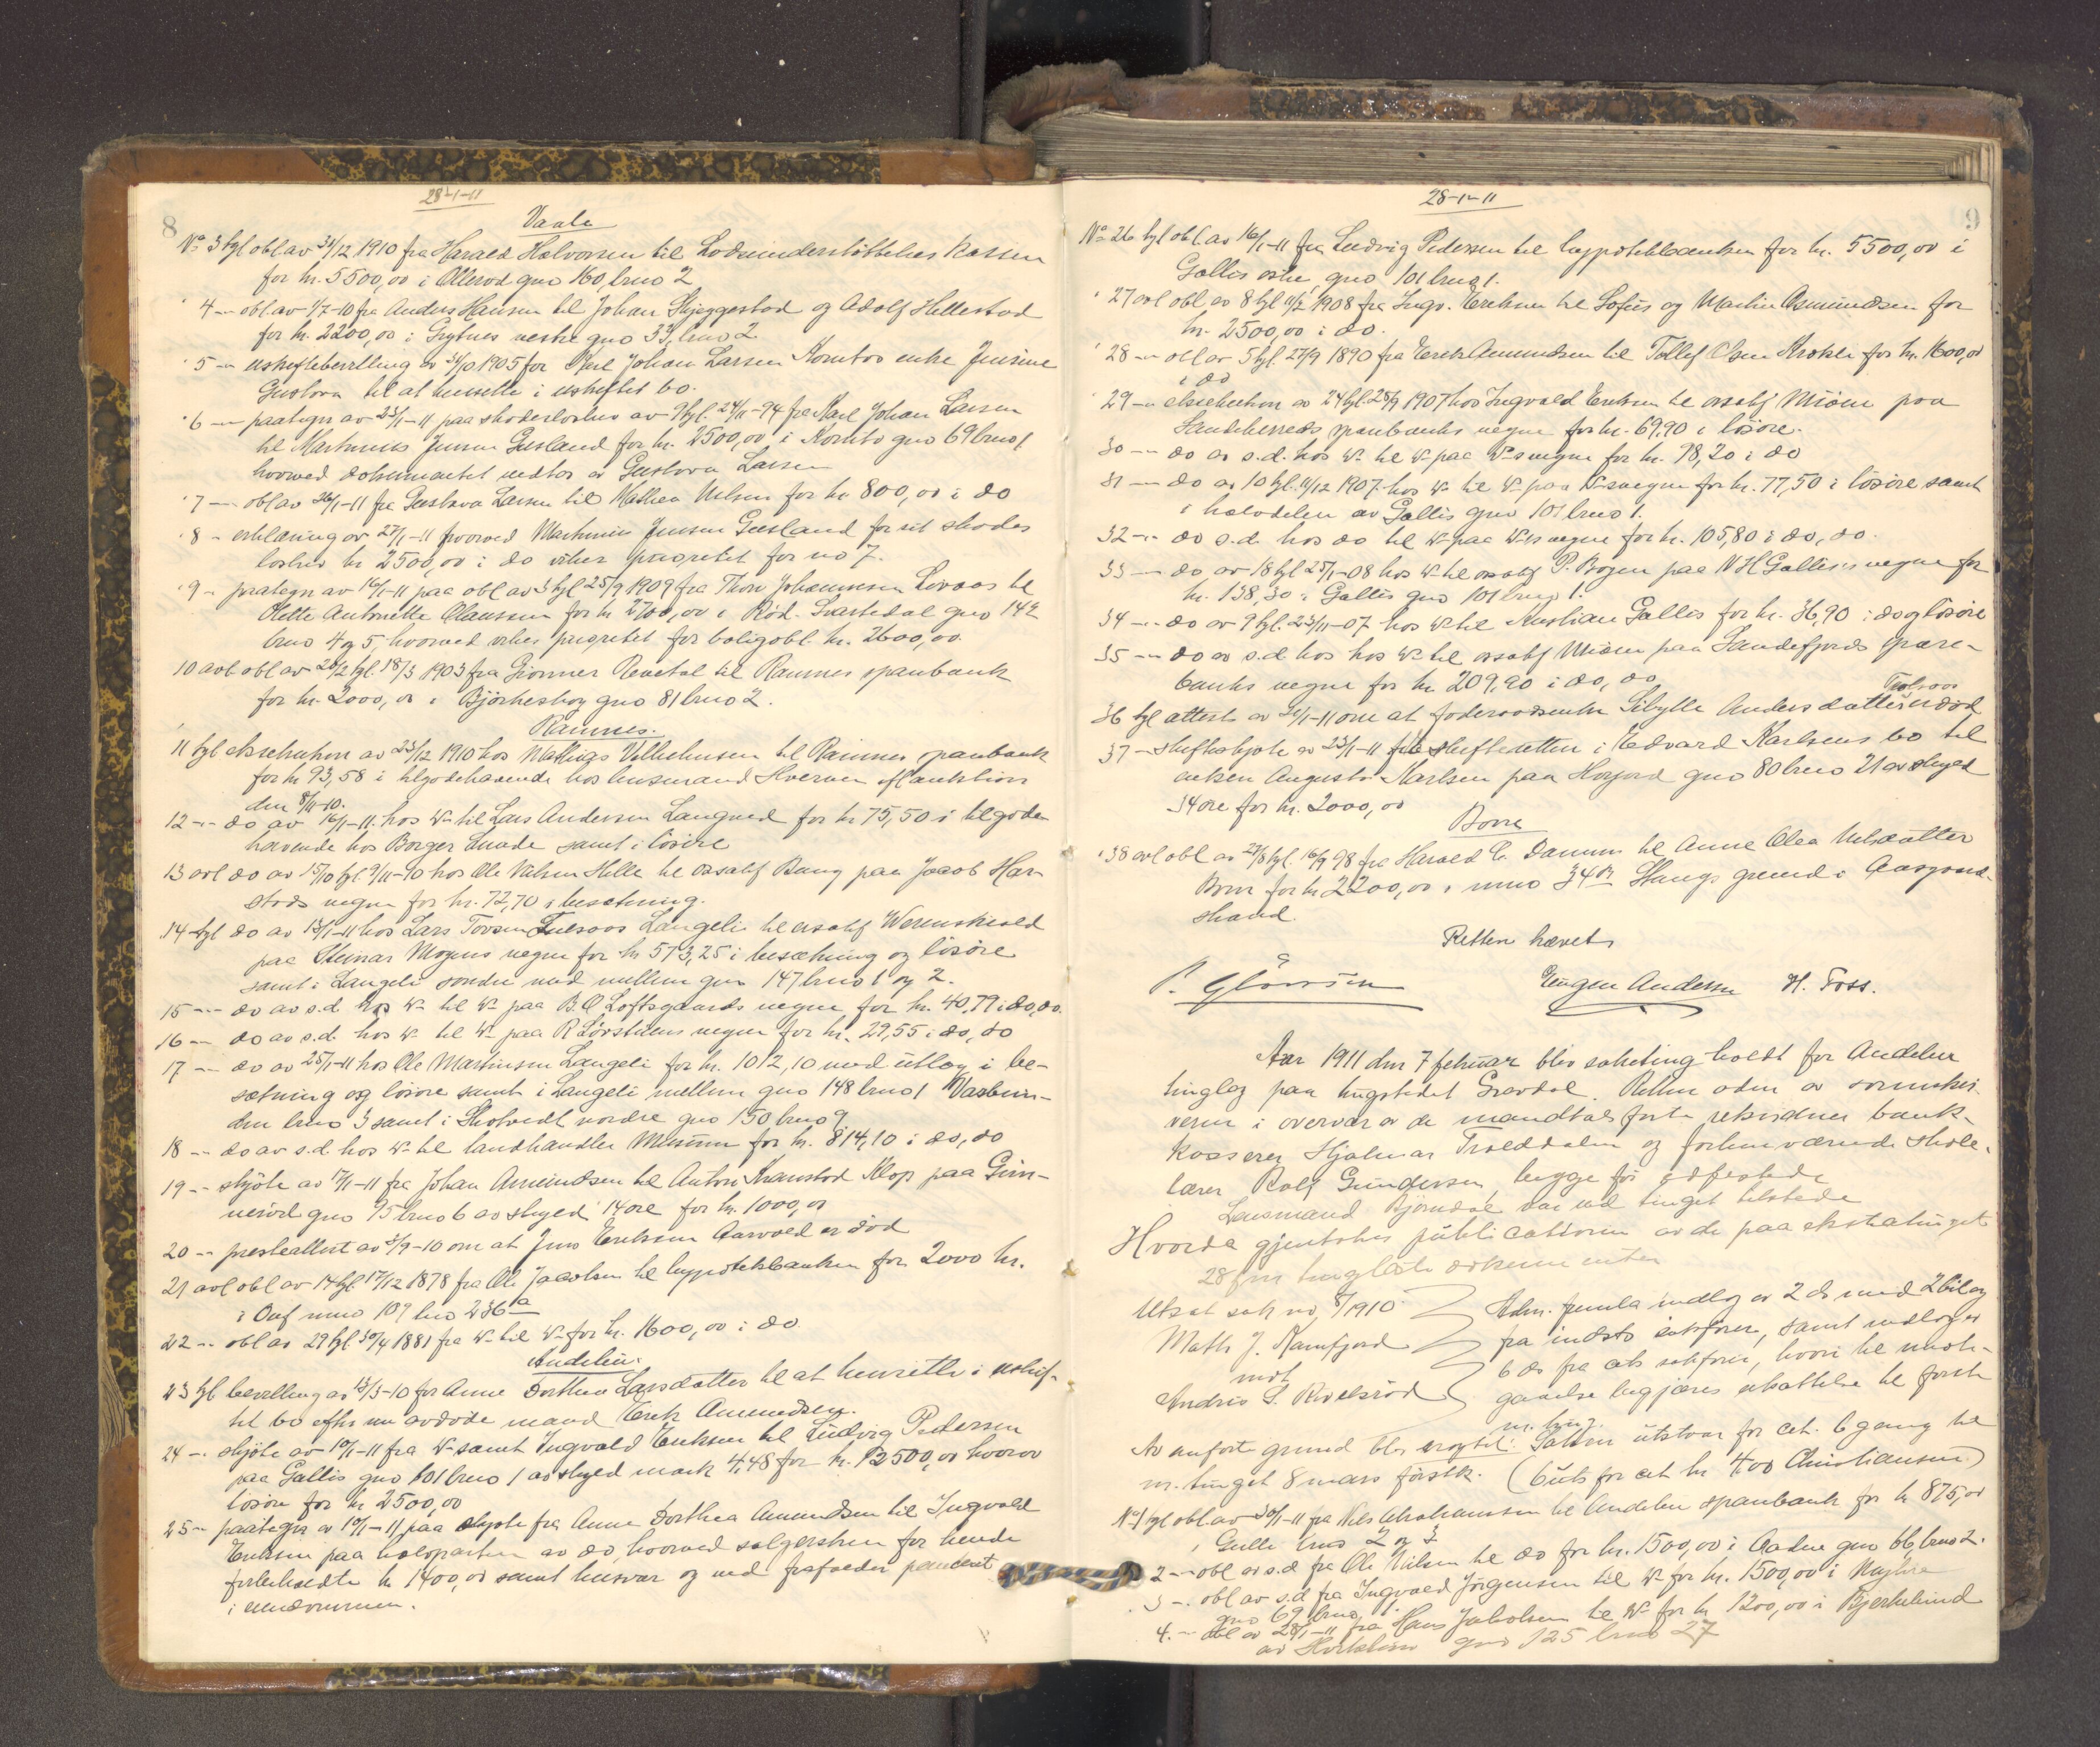 8
28-1-11
Vaale
No 3 tgl obl av 31/12 1910 fra Harald Halvorsen til Lodsunderstöttelses kassen
for kr. 5500,00 i Ollerod gno 160, bruo 2
4 -"- obl av 1/7-10 fra Anders Hansen til Johan Skjeggestad og Adolf Hillestad
for kr. 2200,00 i Grytnes vestre gno 33, bruo 2
5 -"- uskiftebevilling av 31/10 1905 for Karl Johan Larsen enke Jensine
Gustava til at hensitte i uskiftet bo.
6 -"- paategn av 23/1-11 paa skadeslosbrev av 9 tgl. 24/11-94 fra Karl Johan Larsen
til Martinius Jensen Gusland for kr. 2500,00 i gno 69 bruo 1
hvorved dokumentet vedtas av Gustava Larsen
7 -"- obl av 26/1-11 fra Gustava Larsen til Mathea Nilsen for kr 800,00 i do
8 - erklæring av 27/1-11 hvorved Martinius Jensen Gusland for sit skades
losbrev kr 2500,00 i do viker prioritet for no 7.
9 - paategn av 16/1-11 paa obl av 3 tgl 25/9 1909 fra Thor Johannesen Lovaas til
Olette Antonette Olaussen for kr 2700,00 i Rød. Svartedal gno 142
bruo 4 og 5, hvorved vikes prioritet for boligobl. kr. 2600,00.
10 avl obl av 28/2 tgl. 18/3 1903 fra Gunner Revetal til Ramnes sparebank
for kr. 2000,00 i Bjørkeskog gno 81 bruo 2.
Ramnes.
11 tgl eksekution av 23/12 1910 hos Mathias Vilhelmsen til Ramnes sparebank
for kr 93,58 i tilgodehavende hos husmand Hverven efter auktion
den 8/11-10.
12 -"- do av 16/1-11. hos do til Lars Andersen Langved for kr 75,50 i tilgode
havende hos Borger Linde samt i lösöre
13 avl do av 15/10 tgl. 9/11-10 hos Ole Nilsen Hille til o.r.sakf Bang paa Jacob Har-
stads vegne for kr. 72,70 i besætning.
14 tgl do av 13/1-11 hos Lars Tovsen Tuesaas Langeli til o.r.sakf Werenskiold
paa Steinar Mogens vegne for kr 513,25 i besætning og lösöre
samt i Langeli sondre med mellem gno 147 bruo 1 og 2.
15 -"- do av s.d hos do til do paa B.O Loftsgaards vegne for kr. 40,79 i do, do.
16 -"- do av s.d. hos do til do paa R Lövstuens vegne for kr. 29,55 i do, do
17 -"- do av 25/1-11 hos Ole Martinsen Langeli for kr. 1012,10 med utlæg i be-
sætning og lösöre samt i Langeli mellem gno 148 bruo 1
den bruo 3 samt i Skotvedt nordre gno 150 bruo 9
18 -"- do av s.d. hos do til landhandler for kr. 814,10 i do, do
19 -"- skjöte av 17/1-11 fra Johan Amundsen til Anton Klop paa Gun-
neröd gno 75 bruo 6 av skyld 14 öre for kr. 1000,00
20 -"- presteattest av 5/9-10 om at Jens Eriksen Aarvold er död
21 avl obl av 14 tgl 17/12 1878 fra Ole Jacobsen til hypotekbanken for 2000 kr.
i mno 109 lno 236a
22 -"- obl av 29 tgl 30/4 1881 fra do til do for kr. 1600,00 i do
Andebu.
23 tgl bevilling av 13/5-10 for Anne Dorthea Larsdatter til at hensitte i uskif-
tet bo efter sin avdöde mand Erik Amundsen.
24 -. skjöte av 10/1-11 fra do samt Ingvald Eriksen til Ludvig Pedersen
paa Gallis gno 101 bruo 1 av skyld mark 4,48 for kr. 12500,00 hvorav
lösöre for kr 2500,00
25 - paategn av 10/1-11 paa skjöte fra Anne Dorthea Amundsen til Ingvald
Eriksen paa halvparten av do hvorved selgersken for hende
forbeholdte kr 1400,00 samt husvær og ved frafalder panteret
i eiendommen.
9
28-1-11
No 26 tgl obl. av 16/1-11 fra Ludvig Pedersen til hypotekbanken for kr. 5500,00 i
Gallis gno 101 bruo 1.
27 avl obl av 8 tgl 11/2 1908 fra Ingv. Eriksen til Sofus og Martin Asmundsen for
kr. 2500,00 i do.
28 -"- obl av 5 tgl. 27/9 1890 fra Erik Amundsen til Tollef Olsen for kr. 1600,00
i do
29 -"- eksekution av 24 tgl 25/9 1907 hos Ingvald Eriksen til o.r.sakf Miöen paa
Sandeherreds sparebanks vegne for kr. 69,90 i lösöre.
30 -"- do av s.d. hos do til do paa do vegne for kr. 98,20 i do
31 -"- do av 10 tgl. 11/12 1907 hos do til do paa do vegne for kr. 77,50 i lösöre samt
i halvdelen av Gallis gno 101 bruo 1.
32 -"- do s.d. hos do til do paa do vegne for kr. 105,80 i do, do.
33 -"- do av 18 tgl 25/1-08 hos do til o.r.sakf P. Bogen paa N H Gallis's vegne for
kr. 138,30 i Gallis gno 101 bruo 1.
34 -"- do av 9 tgl. 23/11-07 hos do til Kristian Gallis for kr. 36,90 i do og lösöre
35 -"- do av s.d hos hos do til o.r.sakf Miöen paa Sandefjords spare-
banks vegne for kr 209,90 i do, do
36 tgl attest av 21/1-11 om at foderaadsenke Sibylle Andersdatter er död
37 - skifteskjöte av 23/1-11 fra skifteretten i Edvard Karlsens bo til
enken Augusta Karlsen paa gno 80 bruo 21 av skyld
34 öre for kr. 2000,00
Borre
38 avl obl av 27/8 tgl. 16/9 98 fra Harald C. Damm til Anne Olea Nilsdatter
Borre for kr 2200,00 i mno 34 Stangs grund i Aasgaard-
strand.
Retten hævet
Eugen Andersen H. Foss.
Aar 1911 den 7 februar blev saketing holdt for Andebu
tinglag paa tingstedet Gravdal. Retten aden av sorenskri-
veren i overvær av de mandtalsförte retsvidner bank-
kasserer Hjalmar Trolldalen og forhenværende skole-
lærer Rolf Gundersen begge för edfestede
Lensmand Björndal var ved tinget tilstede
Hvorda gjentokes publicationen av de paa ekstratinget
28 f.m tinglæste dokumenter
Utsat sak no 8/1910
Math J. Ramfjord
mot
Andris L. Rivelsröd
Adm. fremla indlæg av 2 ds med 2 bilag
fra indst. sakförer, samt indlæg av
6 ds fra cit. sakförer, hvori til imöte-
gaaelse begjæres utsættelse til förste
m. ting.
Av anförte grund blev avgjort: Saken utstaar for cit. 6 gang til
m. tinget 8 mars förstk. (6 uts for cit kr 4,00 Christiansen)
No 1 tgl obl av 30/1-11 fra Nils Abrahamsen til Andebu sparebank for kr 875,00
i Gulli bruo 2 og 3
2 -"- obl av s.d fra Ole Nilsen til do for kr. 1500,00 i gno 66, bruo 2.
3 -"- obl av s.d fra Ingvald Jörgensen til do for kr. 1500,00 i
gno 69 bruo 1.
4. -"- obl av 28/1-11 fra Hans Jakobsen til do for kr 1200,00 i Bjerkelund
av gno 125 bruo 27